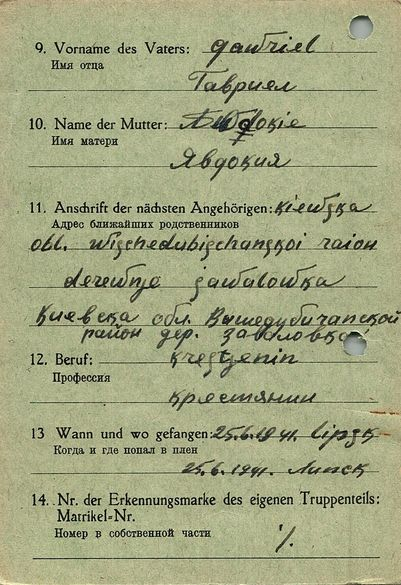 9. Vorname des Vaters: gawriel
Имя отца
Гавриел
10. Name der Mutter: Awdokie
Имя матери
Явдокия
11. Anschrift der nächsten Angehörigen: kiewska
Адрес ближайших родственников
obl. wischedubischanskoi raion
derewnje sawalowka
Киевска обл. Вышедубичанской
район дер. Заваловка
12. Beruf: krestjenin
Профессия
крестянин
13 Wann und wo gefangen: 25.6.1941. lipsk
Когда и где попал в плен
25.6.1941. Липск
14. Nr. der Erkennungsmarke des eigenen Truppenteils:
Matrikel-Nr.
Номер в собственной части
%.